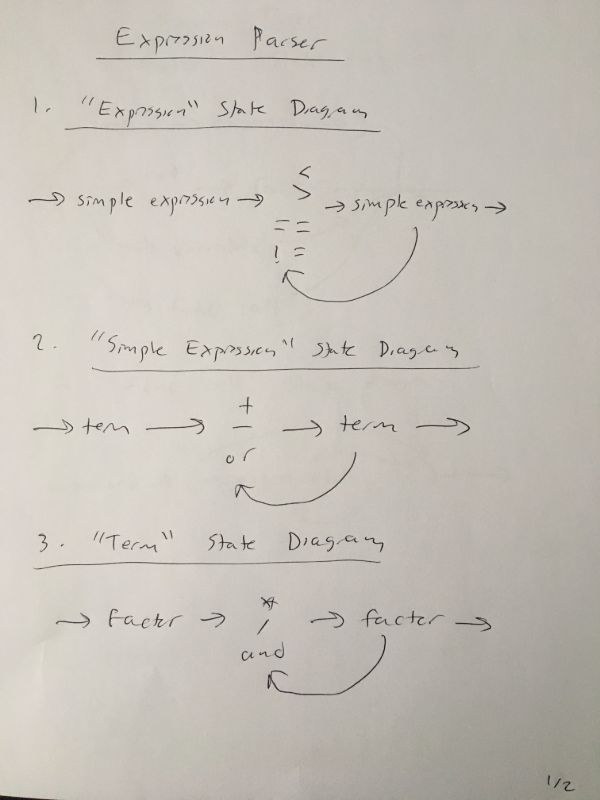 Expression Parser
1. "Expression" State Diagram
<
>
→ simple expression → → simple expression →
==
!=
2. "Simple Expression" State Diagram
+
→ term → - → term →
or
3. "Term" State Diagram
*
→ Factor → / → factor →
and
1/2